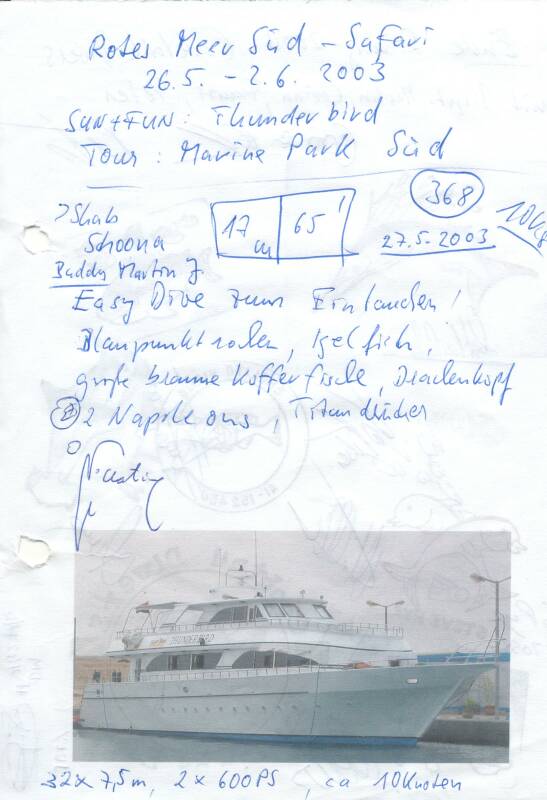 Rotes Meer Süd - Safari
26.5. - 2.6. 2003
SUN+FUN: Thunderbird
Tour: Marine Park Süd
368
10kg
>Shab
Shoona
17 m | 65'
27.5-2003
Buddy Martin J
Easy Dive zum Eintauchen!
Blaupunktrochen, Igelfisch,
große braune Kofferfische, Drachenkopf
2 Napoleons, Titandrücker
Martin
THUNDERBIRD
32 x 7,5m, 2 x 600PS, ca 10Knoten